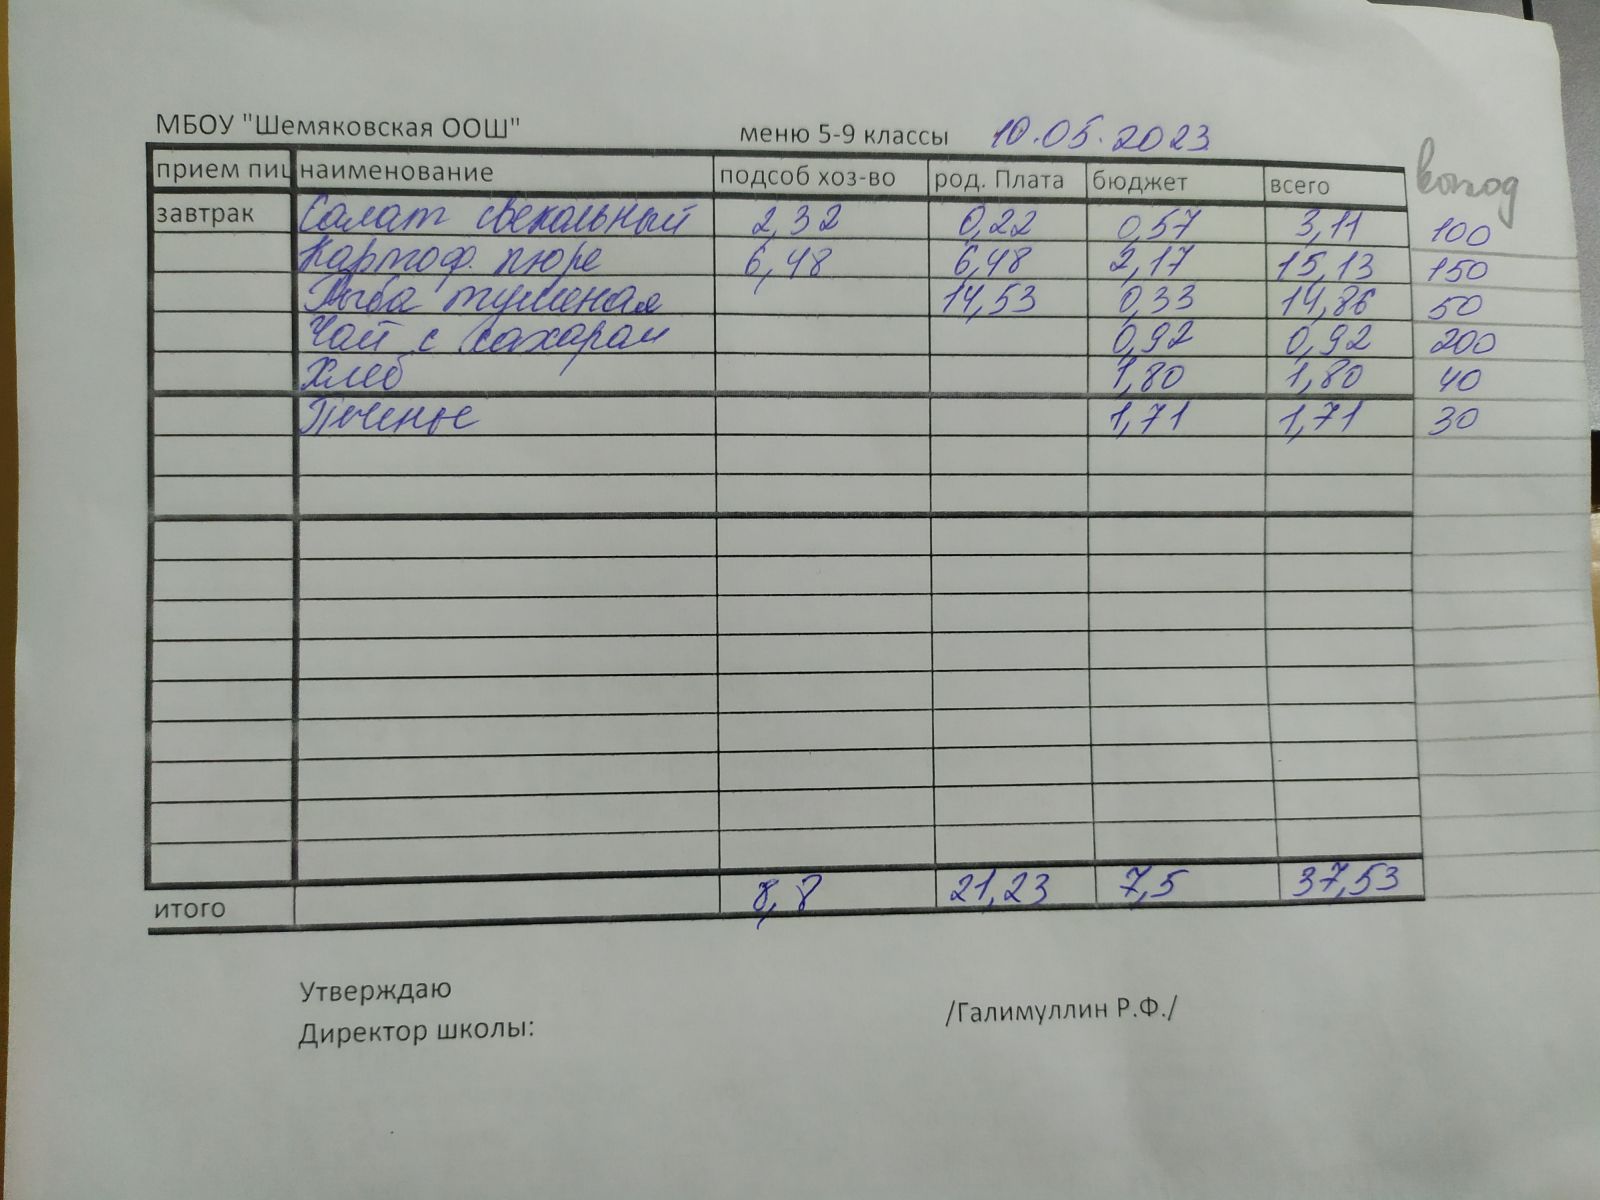 МБОУ "Шемяковская ООШ" меню 5-9 классы 10.05.2023
прием пиц наименование подсоб хоз-во род. Плата бюджет всего выход
завтрак Салат свекольный 2,32 0,22 0,57 3,11 100
Картоф. пюре 6,48 6,48 2,17 15,13 150
Рыба тушеная 14,53 0,33 14,86 50
Чай с сахаром 0,92 0,92 200
Хлеб 1,80 1,80 40
Печенье 1,71 1,71 30
итого 8,8 21,23 7,5 37,53
Утверждаю
Директор школы: /Галимуллин Р.Ф./